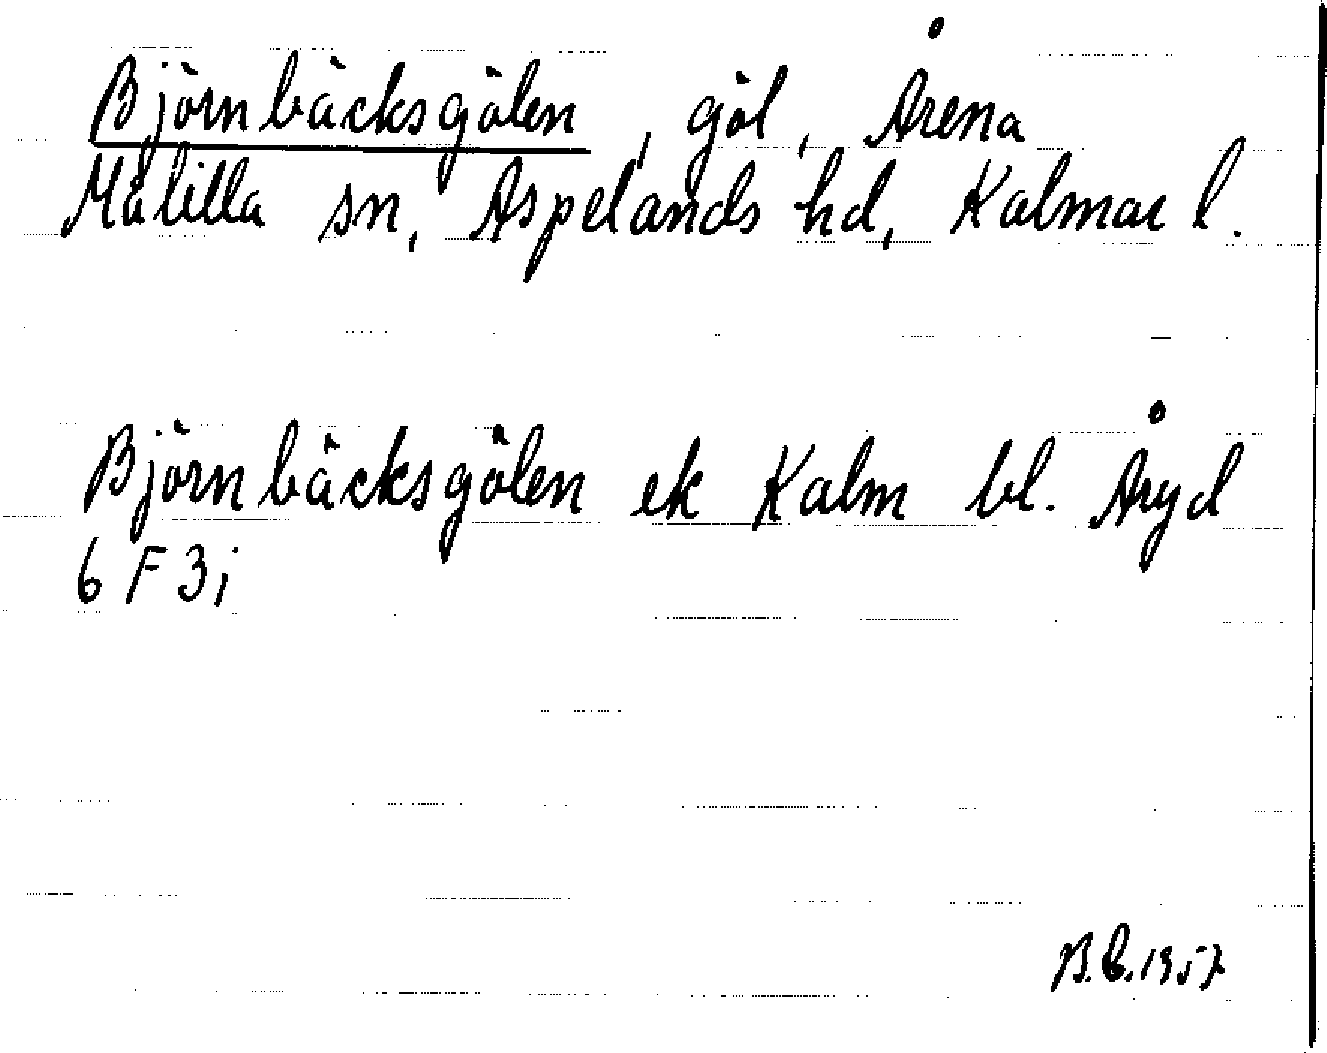 Björnbäcksgölen, göl, Årena
Målilla sn, Aspelands hd, Kalmar l.
Björnbäcksgölen ek Kalm bl. Åryd
6 F 3i
B.E. 1957